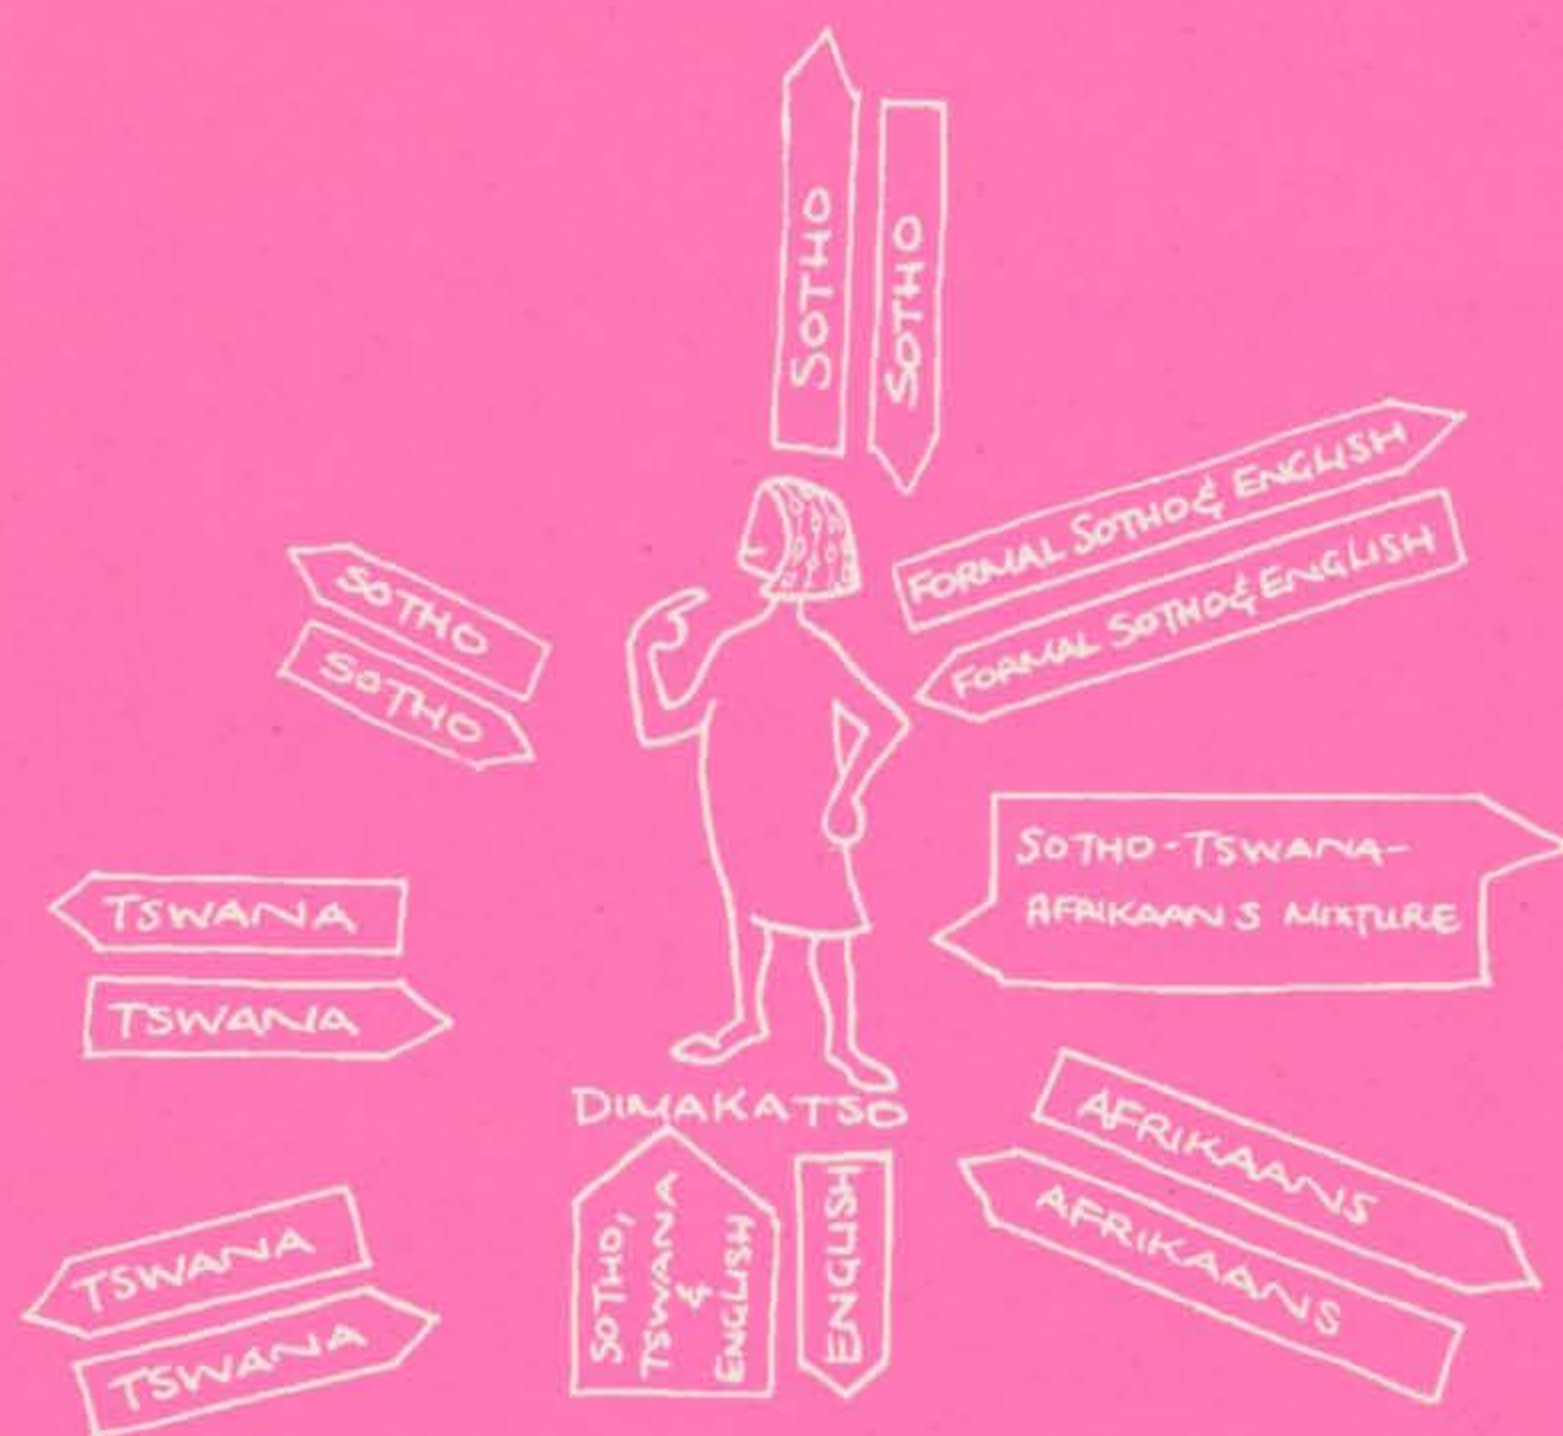 SOTHO
SOTHO
FORMAL SOTHO & ENGLISH
FORMAL SOTHO & ENGLISH
SOTHO
SOTHO
SOTHO-TSWANA-
AFRIKAANS MIXTURE
TSWANA
TSWANA
DIMAKATSO
AFRIKAANS
AFRIKAANS
SOTHO,
TSWANA
&
ENGLISH
ENGLISH
TSWANA
TSWANA